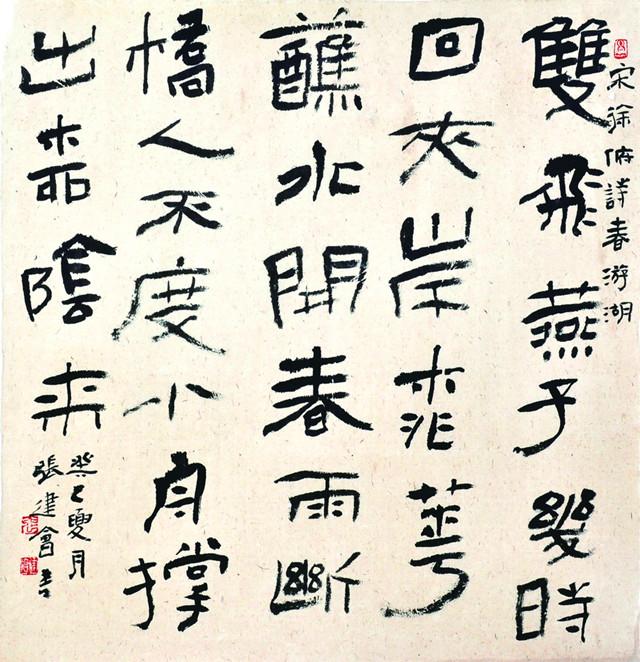 宋徐俯詩春游湖
雙飛燕子幾時
回夾岸桃華
蘸水開春雨斷
橋人不度小舟撐
出柳陰來
癸巳夏月
張建會書